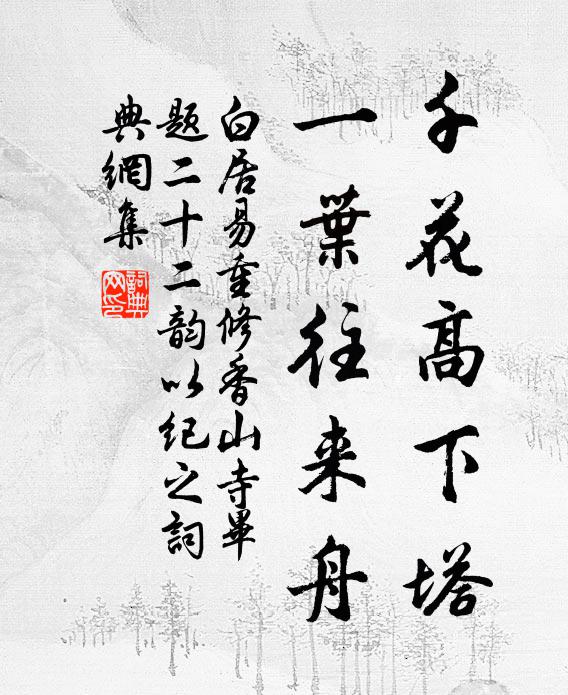 千花高下塔
一葉往来舟
白居易重修香山寺畢
题二十二韵以纪之詞
典網集
詞典
网印